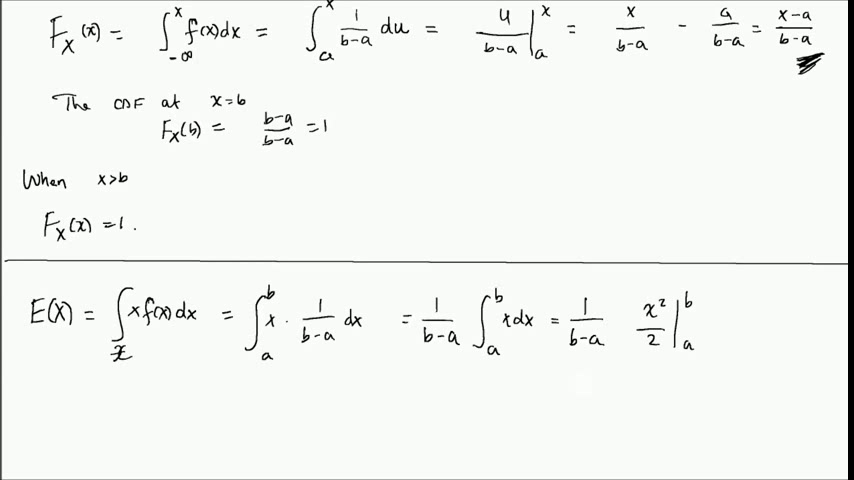 F_X(x) = ∫_{-∞}^{x} f(x)dx = ∫_{a}^{x} \frac{1}{b-a} du = \frac{u}{b-a} |_{a}^{x} = \frac{x}{b-a} - \frac{a}{b-a} = \frac{x-a}{b-a}
The CDF at x=b
F_X(b) = \frac{b-a}{b-a} = 1
When x>b
F_X(x) = 1.
E(X) = ∫_{x} x f(x) dx = ∫_{a}^{b} x · \frac{1}{b-a} dx = \frac{1}{b-a} ∫_{a}^{b} x dx = \frac{1}{b-a} \frac{x^2}{2} |_{a}^{b}